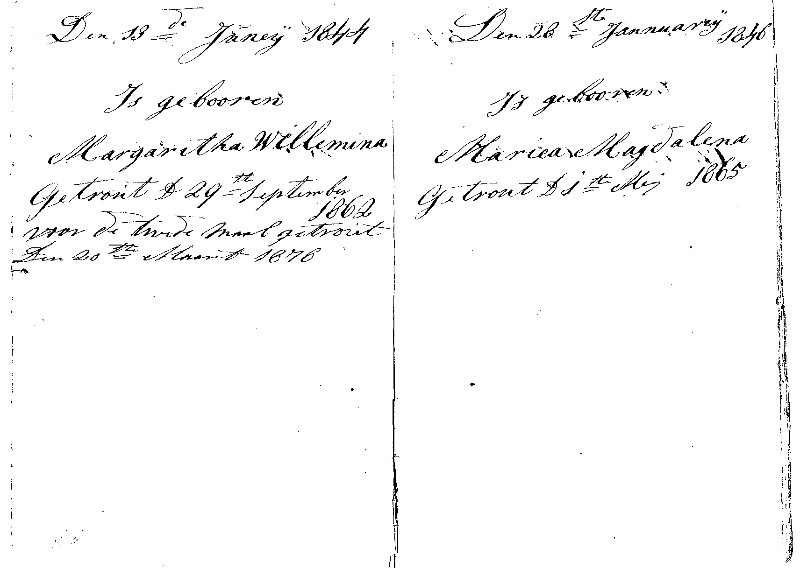 Den 13 de Juney 1844
Is gebooren
Margaritha Willemina
Getrout D 29 th September
1862
voor de twede maal getrout
Den 20 th Maart 1876
Den 28 th Jannuarey 1846
Is gebooren
Mariea Magdalena
Getrout D 1 th Mej 1865